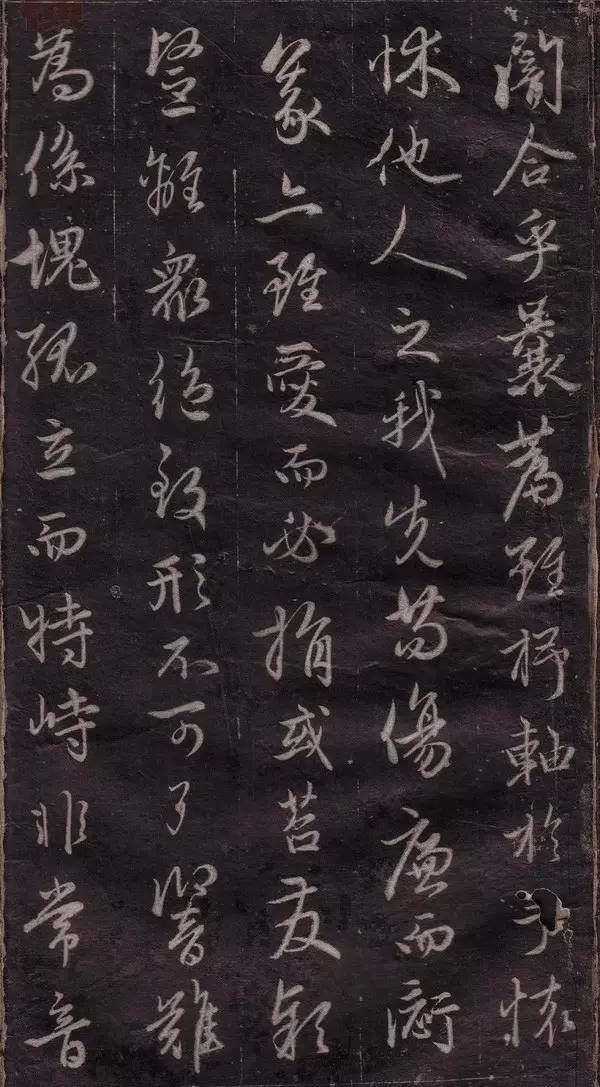 闇合乎曩篇雖杼軸於予懷
怵他人之我先苟傷廉而愆
義亦雖愛而必捐或苕發穎
竪離衆絶致形不可逐響難
為係塊孤立而特峙非常音